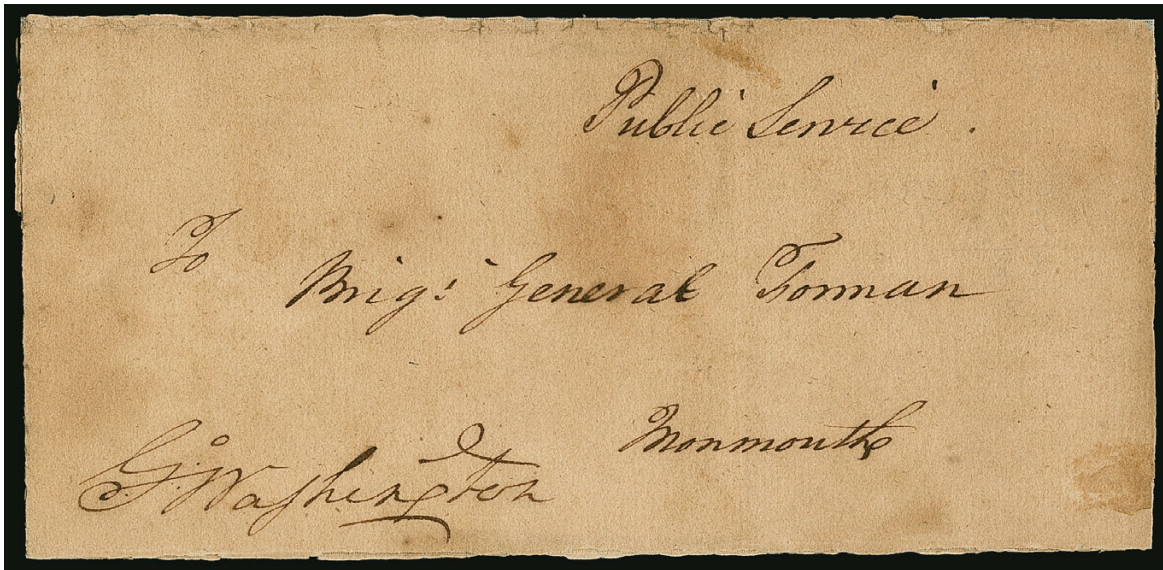 Public Service.
To
Brigr General Forman
Monmouth
Go: Washington